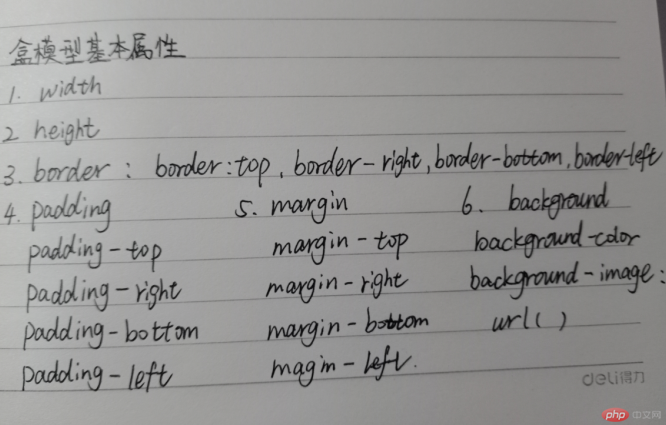 盒模型基本属性
1. width
2 height
3. border : border:top, border-right, border-bottom, border-left
4. padding 5. margin 6. background
padding-top margin-top background-color
padding-right margin-right background-image:
padding-bottom margin-bottom url( )
padding-left magin-left.
deli得力
php 中文网